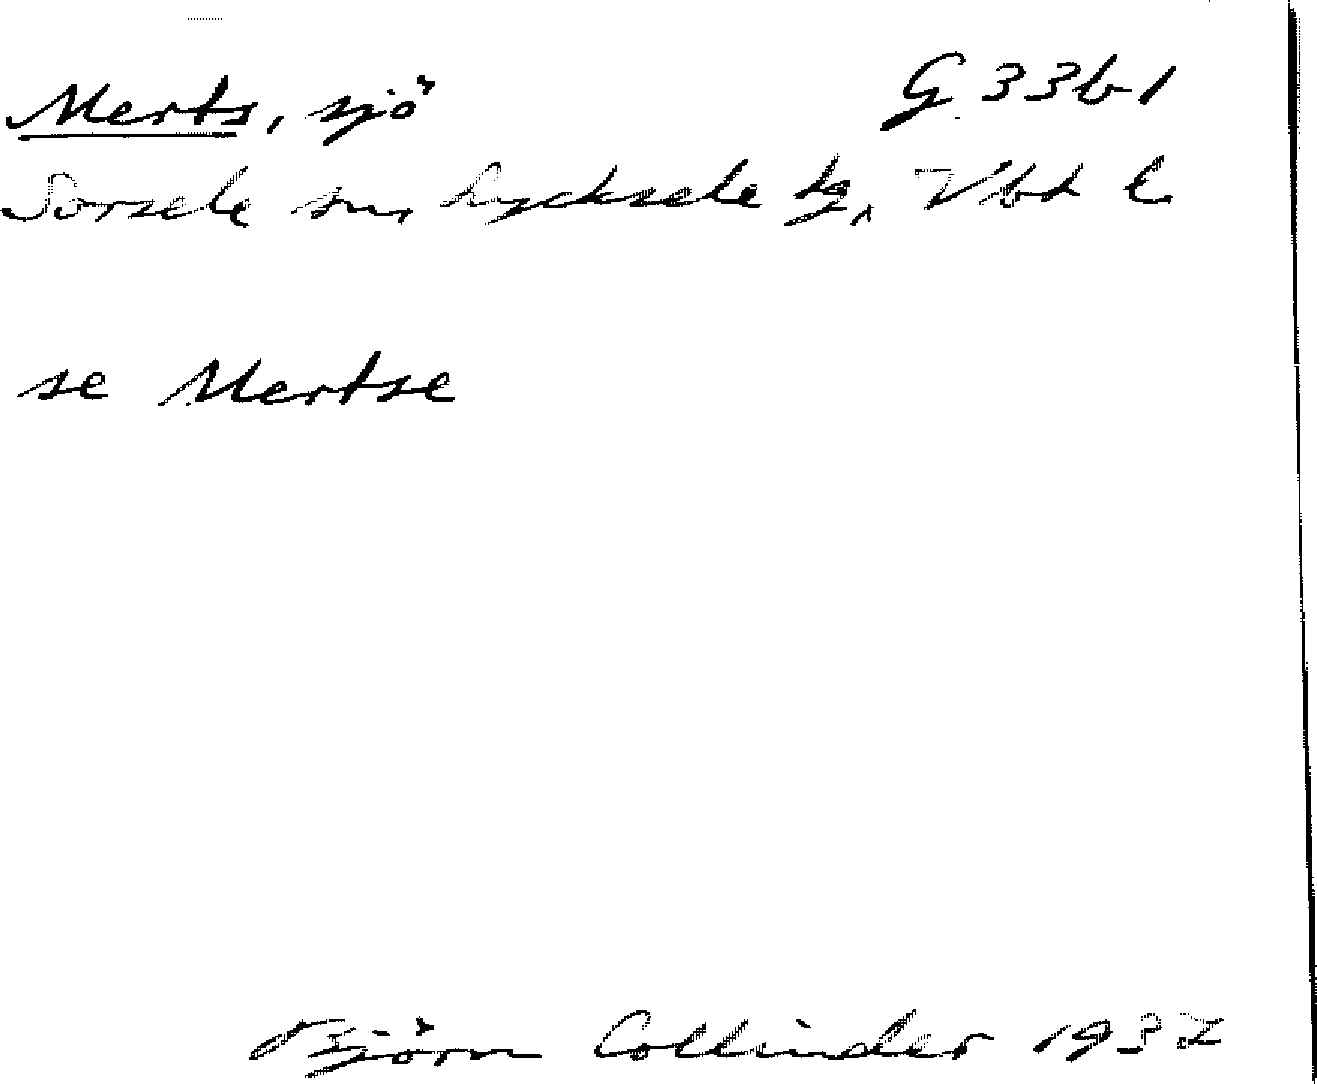 Merts, sjö G 33b1
Sorsele sn, Lycksele tg, Vbt l
se Mertse
Björn Collinder 1937